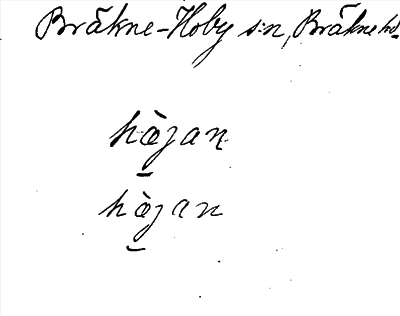 Bräkne-Hoby s:n, Bräkne hd
hòjan
hòjan